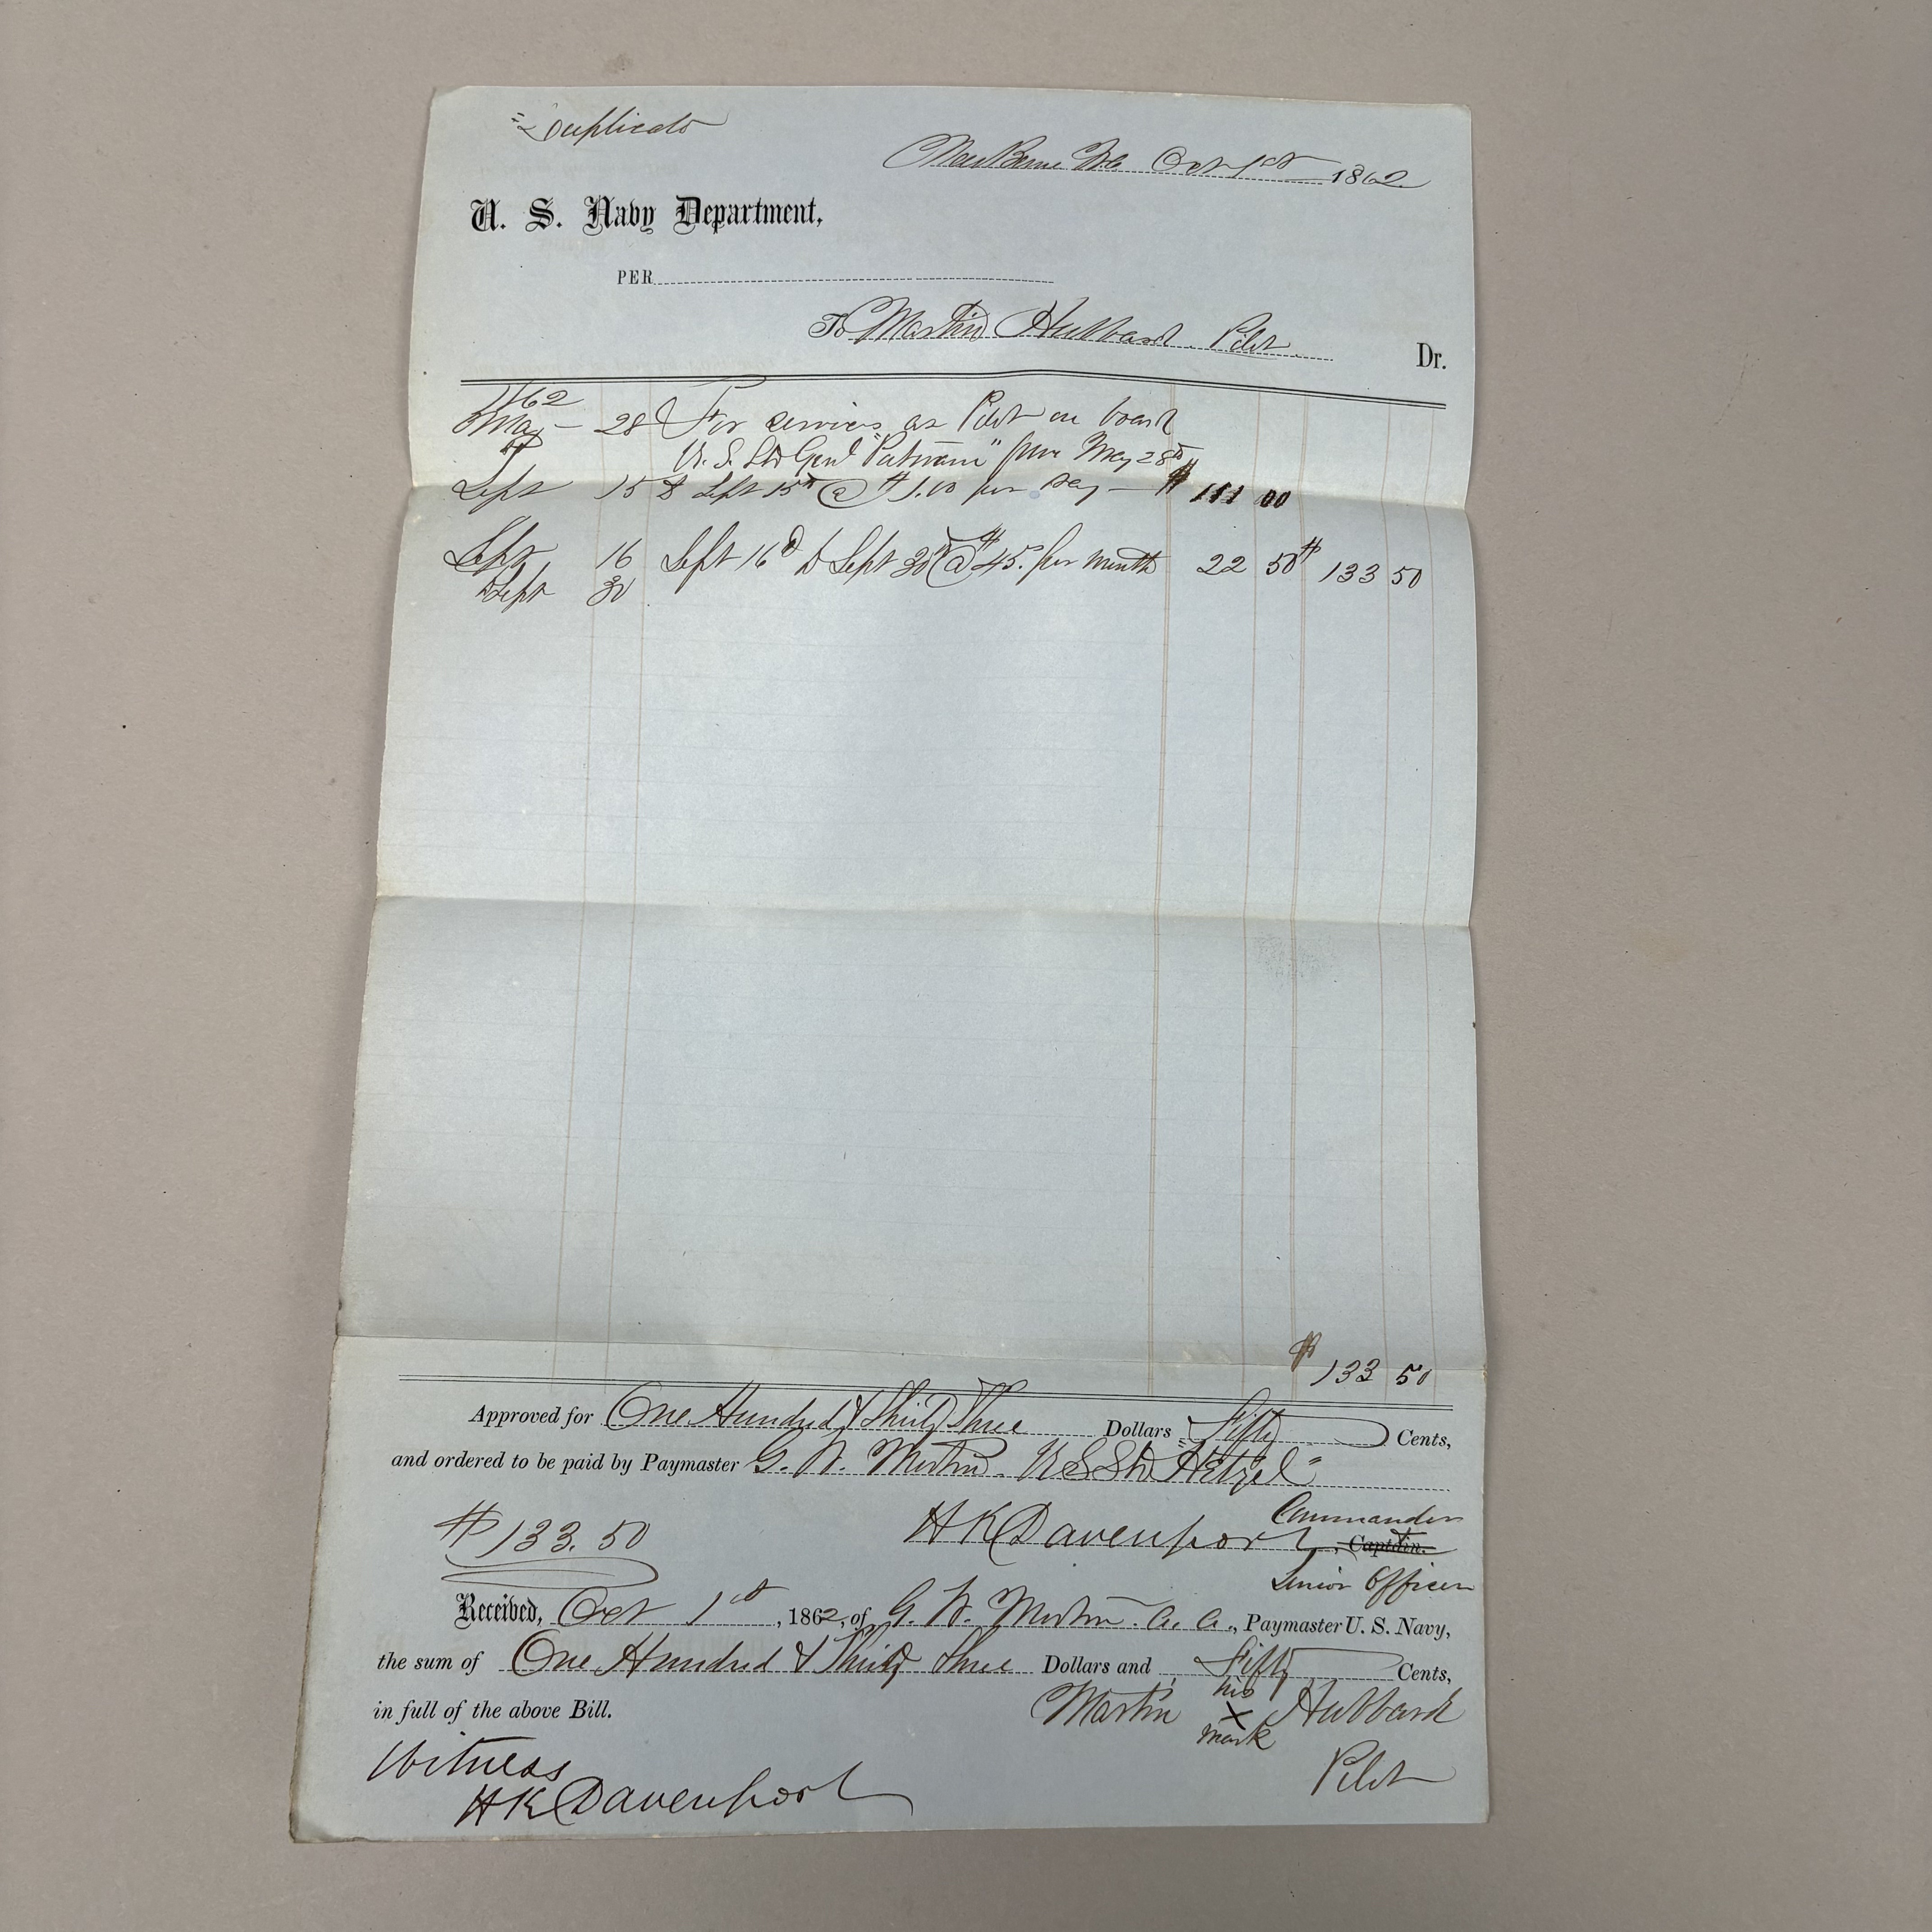 "Duplicate
New Berne N.C. Oct 1st 1862
U. S. Navy Department,
PER
To Martin Hubbard. Pilot. Dr.
1862
May - 28 For services as Pilot on board
to U. S. Str Genl "Putnam" from May 28th
Sept 15 to Sept 15th @ $1.00 per day — $ 111 00
Sept 16 Sept 16th to Sept 30th @ $45. per month 22 50 $ 133 50
to Sept 30
$ 133 50
Approved for One Hundred & Thirty Three Dollars Fifty Cents,
and ordered to be paid by Paymaster G. W. U S Str "Hetzel"
$133.50 H K Davenport, Commander
Captain.
Senior Officer
Received, Oct 1st, 1862, of G. W. A. A., Paymaster U. S. Navy,
the sum of One Hundred & Thirty Three Dollars and Fifty Cents,
in full of the above Bill. Martin his x mark Hubbard
Pilot
Witness
H K Davenport